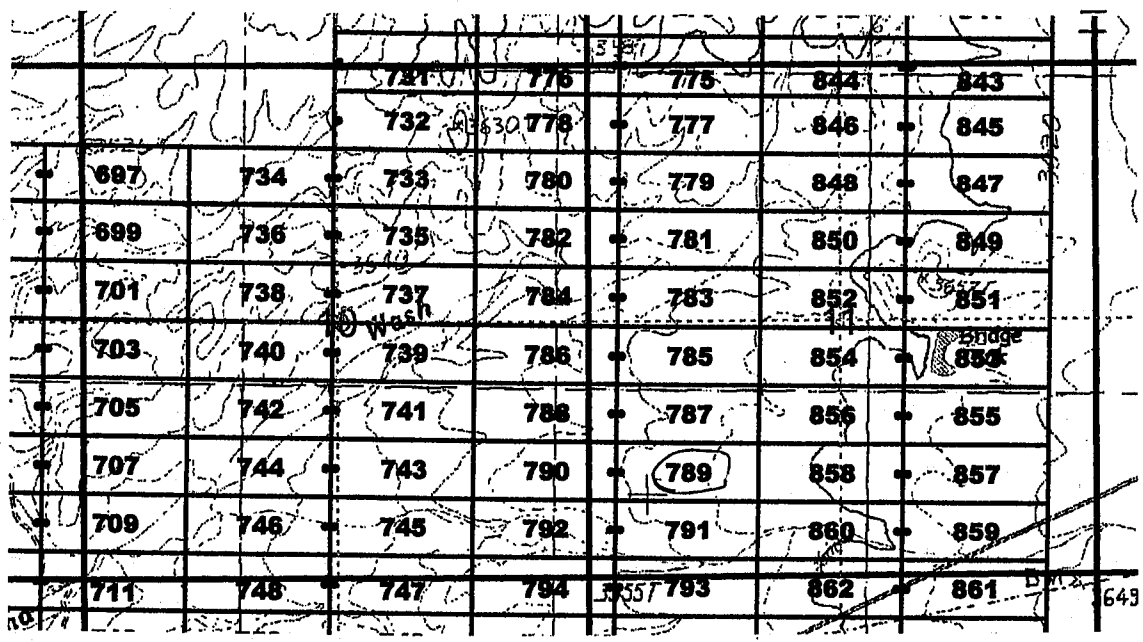 731 776 775 844 843
732 3630T 778 777 846 845
697 734 733 780 779 848 847
699 736 735 782 781 850 849
701 738 737 784 783 852 851
Wash
703 740 739 786 785 854 Bridge 853
705 742 741 788 787 856 855
707 744 743 790 789 858 857
709 746 745 792 791 860 859
711 748 747 794 793 862 861
3649